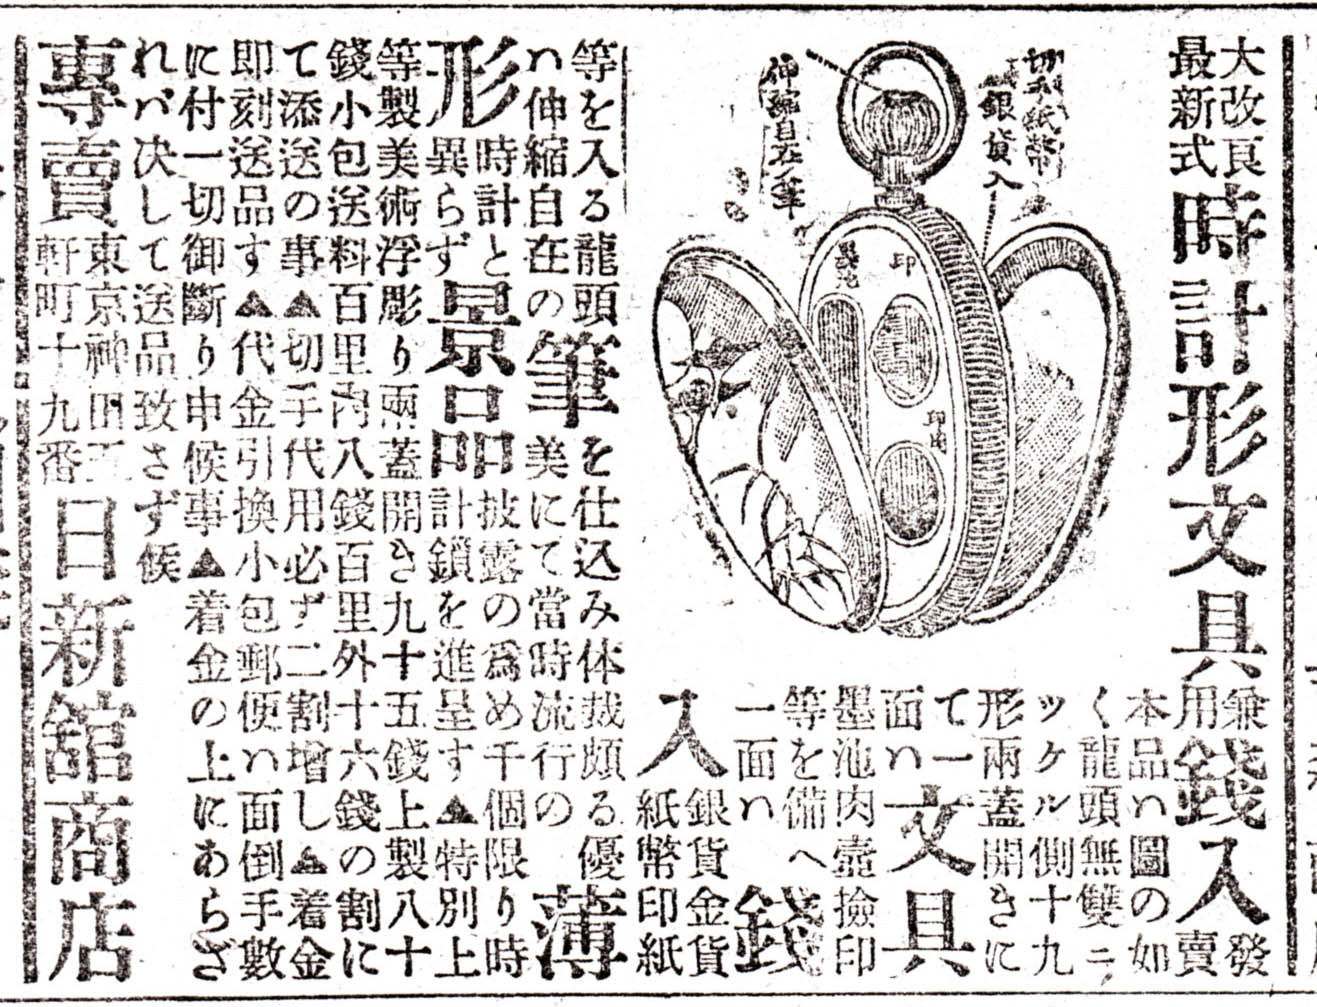 大改良
最新式
時計形文具
兼用
錢入
發賣
切手紙幣
銀貨入
伸縮自在之筆
墨池
印
印肉
本品ハ圖の如
く龍頭無雙ニ
ッケル側十九
形兩蓋開きに
て一
面ハ
文具
墨池肉壺撿印
等を備へ
一面ハ
錢
入
銀貨金貨
紙幣印紙
等を入る龍頭
ハ伸縮自在の
筆
を仕込み体裁頗る優
美にて當時流行の
薄
形
時計と
異らず
景品
披露の爲め千個限り時
計鎖を進呈す▲特別上
等製美術浮彫り兩蓋開き九十五錢上製八十
錢小包送料百里内八錢百里外十六錢の割に
て添送の事▲切手代用必ず二割增し▲着金
即刻送品す▲代金引換小包郵便ハ面倒手數
に付一切御斷り申候事▲着金の上にあらざ
れバ決して送品致さず候
專賣
東京神田五
軒町十九番
日新舘商店